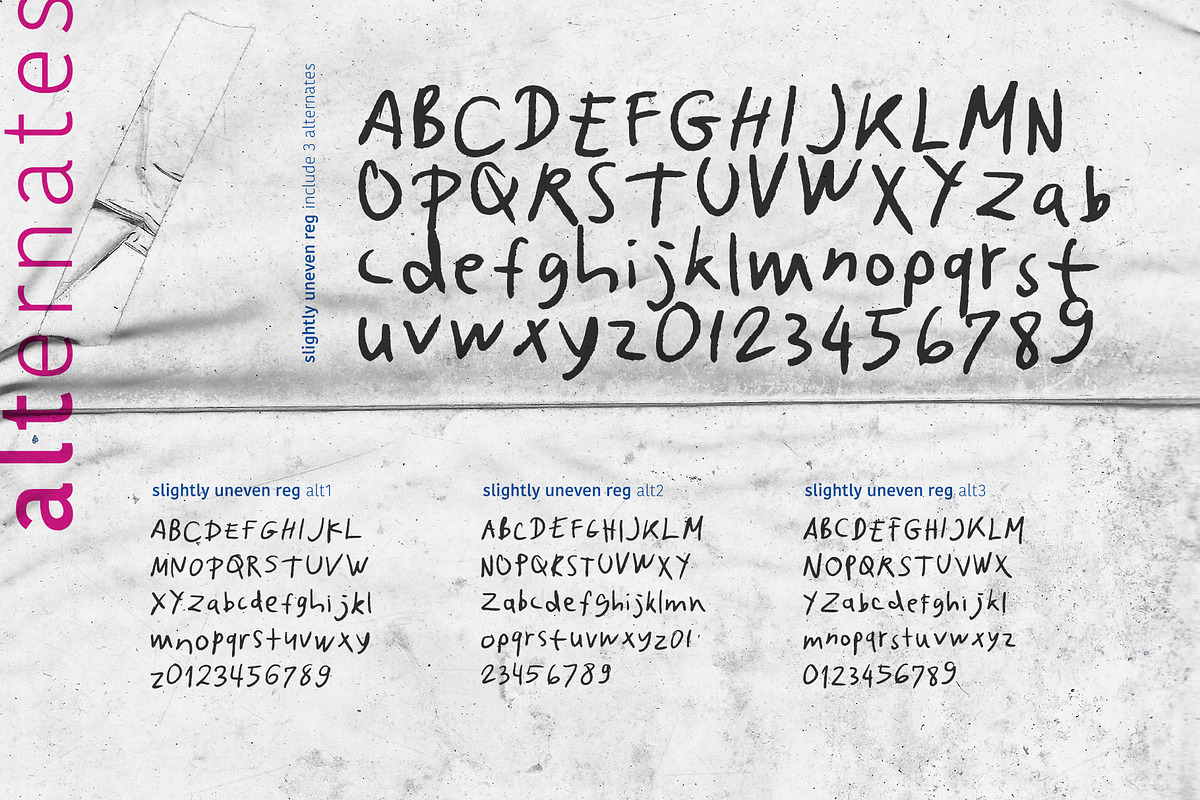 alternates
slightly uneven reg include 3 alternates
ABCDEFGHIJKLMN
OPQRSTUVWXYZab
cdefghijklmnopqrst
uvwxyz0123456789
slightly uneven reg alt1
ABCDEFGHIJKL
MNOPQRSTUVW
XYZabcdefghijkl
mnopqrstuvwxy
z0123456789
slightly uneven reg alt2
ABCDEFGHIJKLM
NOPQRSTUVWXY
Zabcdefghijklmn
opqrstuvwxyz01
23456789
slightly uneven reg alt3
ABCDEFGHIJKLM
NOPQRSTUVWX
YZabcdefghijkl
mnopqrstuvwxyz
0123456789